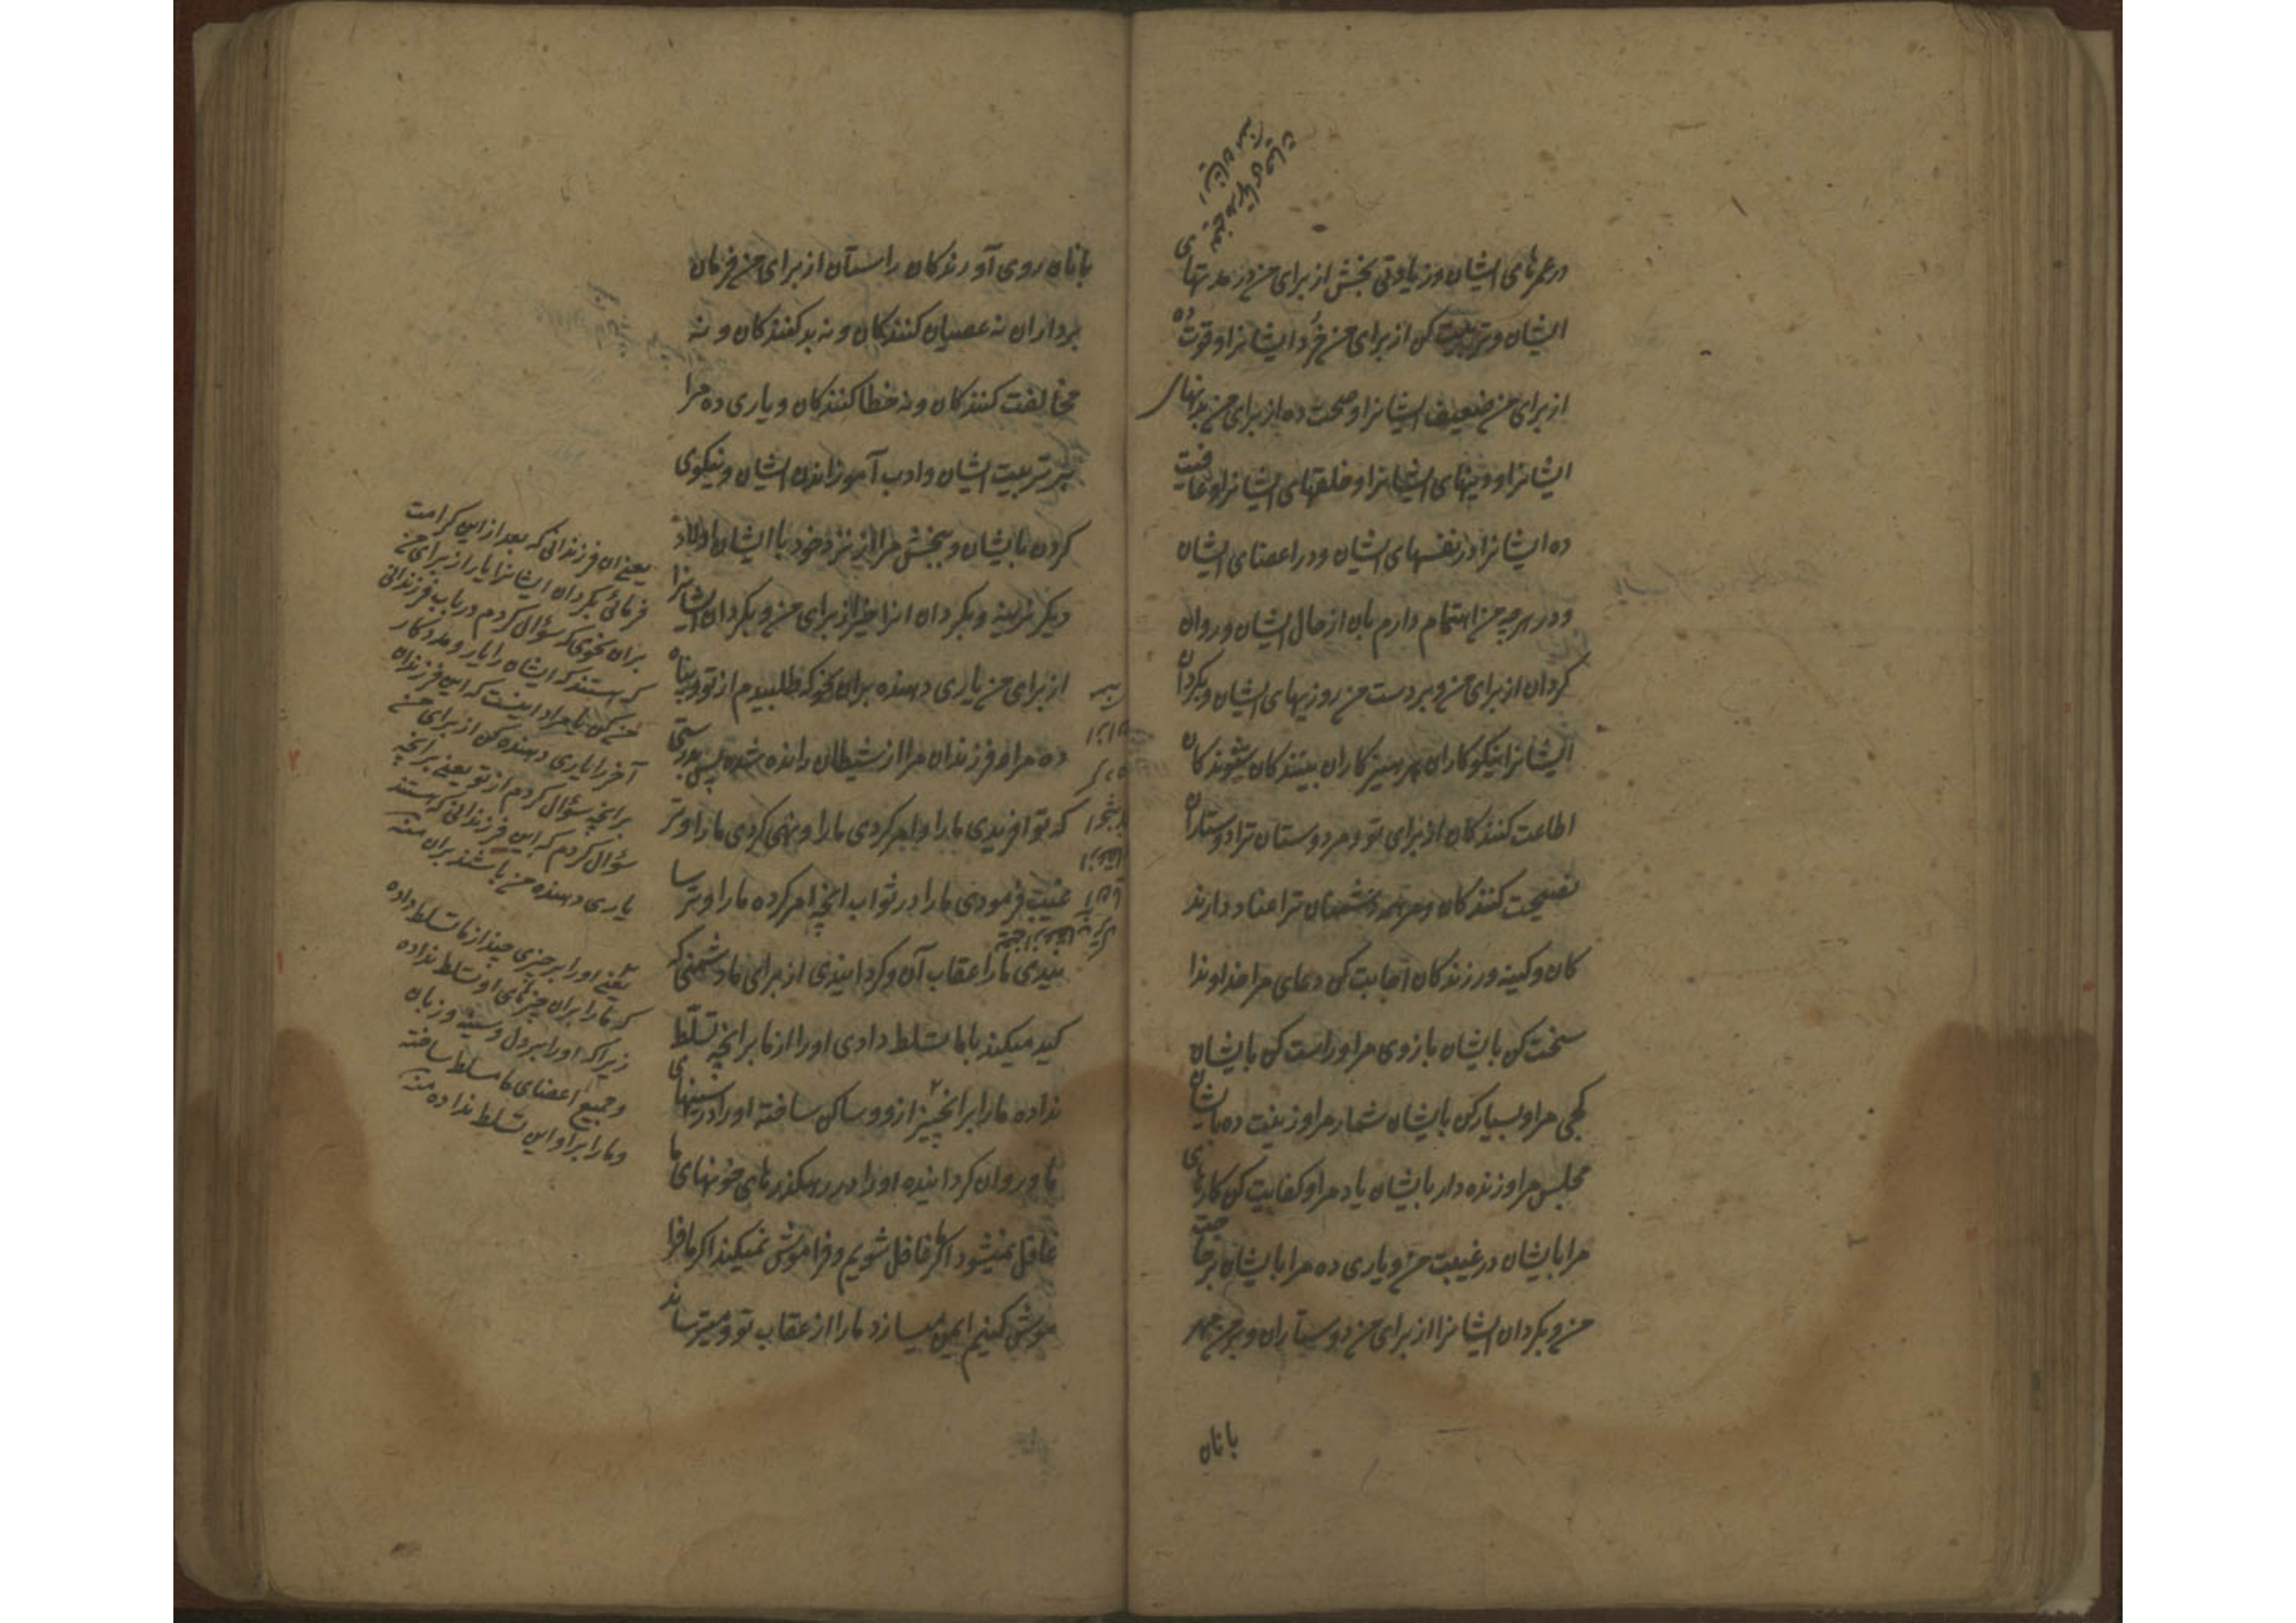 در عمرهای ایشان و زیادتی بخش از برای من در مدتهای
ایشان و تربیت کن از برای من خرد ایشانرا و قوت ده
از برای من ضعیف ایشانرا و صحت ده از برای من بدنهای
ایشانرا و دینهای ایشانرا و خلقهای ایشانرا و عافیت
ده ایشانرا در نفسهای ایشان و در اعضای ایشان
و در هر چه من اهتمام دارم بان از حال ایشان و روان
کردان از برای من و بر دست من روزیهای ایشان و بکردان
ایشانرا نیکوکاران پرهیزکاران بینندکان شنوندکان
اطاعت کنندکان از برای تو و مر دوستان ترا دوستاران
نصیحت کنندکان و مر همه دشمنان ترا عناد دارند
کان و کینه ورزندکان اجابت کن دعای مرا خداوندا
سخت کن بایشان بازوی مرا و راست کن بایشان
کجی مرا و بسیار کن بایشان شمار مرا و زینت ده بایشان
مجلس مرا و زنده دار بایشان یاد مرا و کفایت کن کارهای
مرا بایشان در غیبت من و یاری ده مرا بایشان بر حاجت
من و بکردان ایشانرا از برای من دوستاران و بر من مهر
بانان
بانان روی آورندکان راستان از برای من فرمان
برداران نه عصیان کنندکان و نه بد کنندکان و نه
مخالفت کنندکان و نه خطا کنندکان و یاری ده مرا
بر تربیت ایشان و ادب آموزاندن ایشان و نیکوی
کردن بایشان و ببخش مرا از نزد خود با ایشان اولاد
دیکر نرینه و بکردان انرا خیر از برای من و بکردان ایشانرا
از برای من یاری دهنده بران نحو که طلبیدم از تو و پناه
ده مرا و فرزندان مرا از شیطان رانده شده پس بدرستی
که تو افریدی ما را و امر کردی ما را و نهی کردی ما را و تر
غیب فرمودی ما را در ثواب انچه امر کرده ما را و ترسا
نیدی ما را عقاب آن و کردانیدی از برای ما دشمنی که
کید میکند با ما تسلط دادی او را از ما بر انچه تسلّط
نداده ما را بر انچیز از وو ساکن ساخته او را در سینهای
ما و روان کردانیده او را در رهکذرهای خونهای ما
غافل نمیشود اکر ما غافل شویم و فراموش نمیکند اکر ما فرا
موش کنیم ایمن میسازد ما را از عقاب تو و میترساند
یعنی ان فرزندانی که بعد از این کرامت
فرمائی بکردان ایشانرا یار از برای من
بران نحوی که سؤال کردم در باب فرزندانی
که هستند که ایشان را یار و مددکار
من کن یا مراد اینست که این فرزندان
آخر را یاری دهنده کن از برای من
بر انچه سؤال کردم از تو یعنی بر انچه
سؤال کردم که این فرزندانی که هستند
یاری دهنده من باشند بران منه
یعنی او را بر چیزی چند از ما تسلط داده
که ما را بران چیزهای او تسلط نداده
زیرا که او را بر دل و سینه و زبان
و جمیع اعضای ما مسلط ساخته
و ما را بر او این تسلط نداده منه